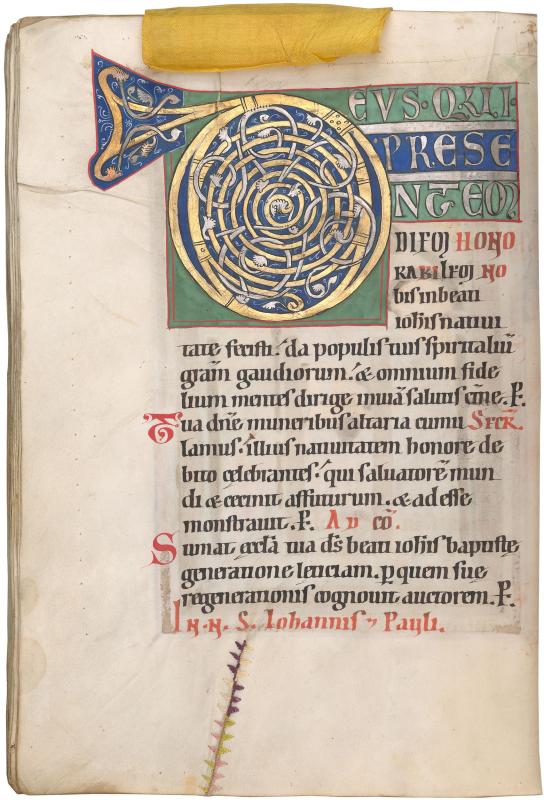 DEVS·QUI·
PRESE
NTEM
DIEM HONO
RABILEM NO
bis in beati
iohis natiui
tate fecisti. da populis tuis spiritaliū
gr̄am gaudiorum. & omnium fide
lium mentes dirige in uiā salutis et̄ne. P.
Tua dn̄e muneribus altaria cumu SECR̄.
lamus. illius natiuitatem honore de
bito celebrantes. qui saluatorē mun
di & cecinit affuturum. & adesse
monstrauit. P. AD CO̅.
Sumat eccl̄a tua d̄s beati iohis baptiste
generatione leticiam. p̱ quem sue
regenerationis cognouit auctorem. P.
In. N. S. Iohannis ⁊ Pauli.